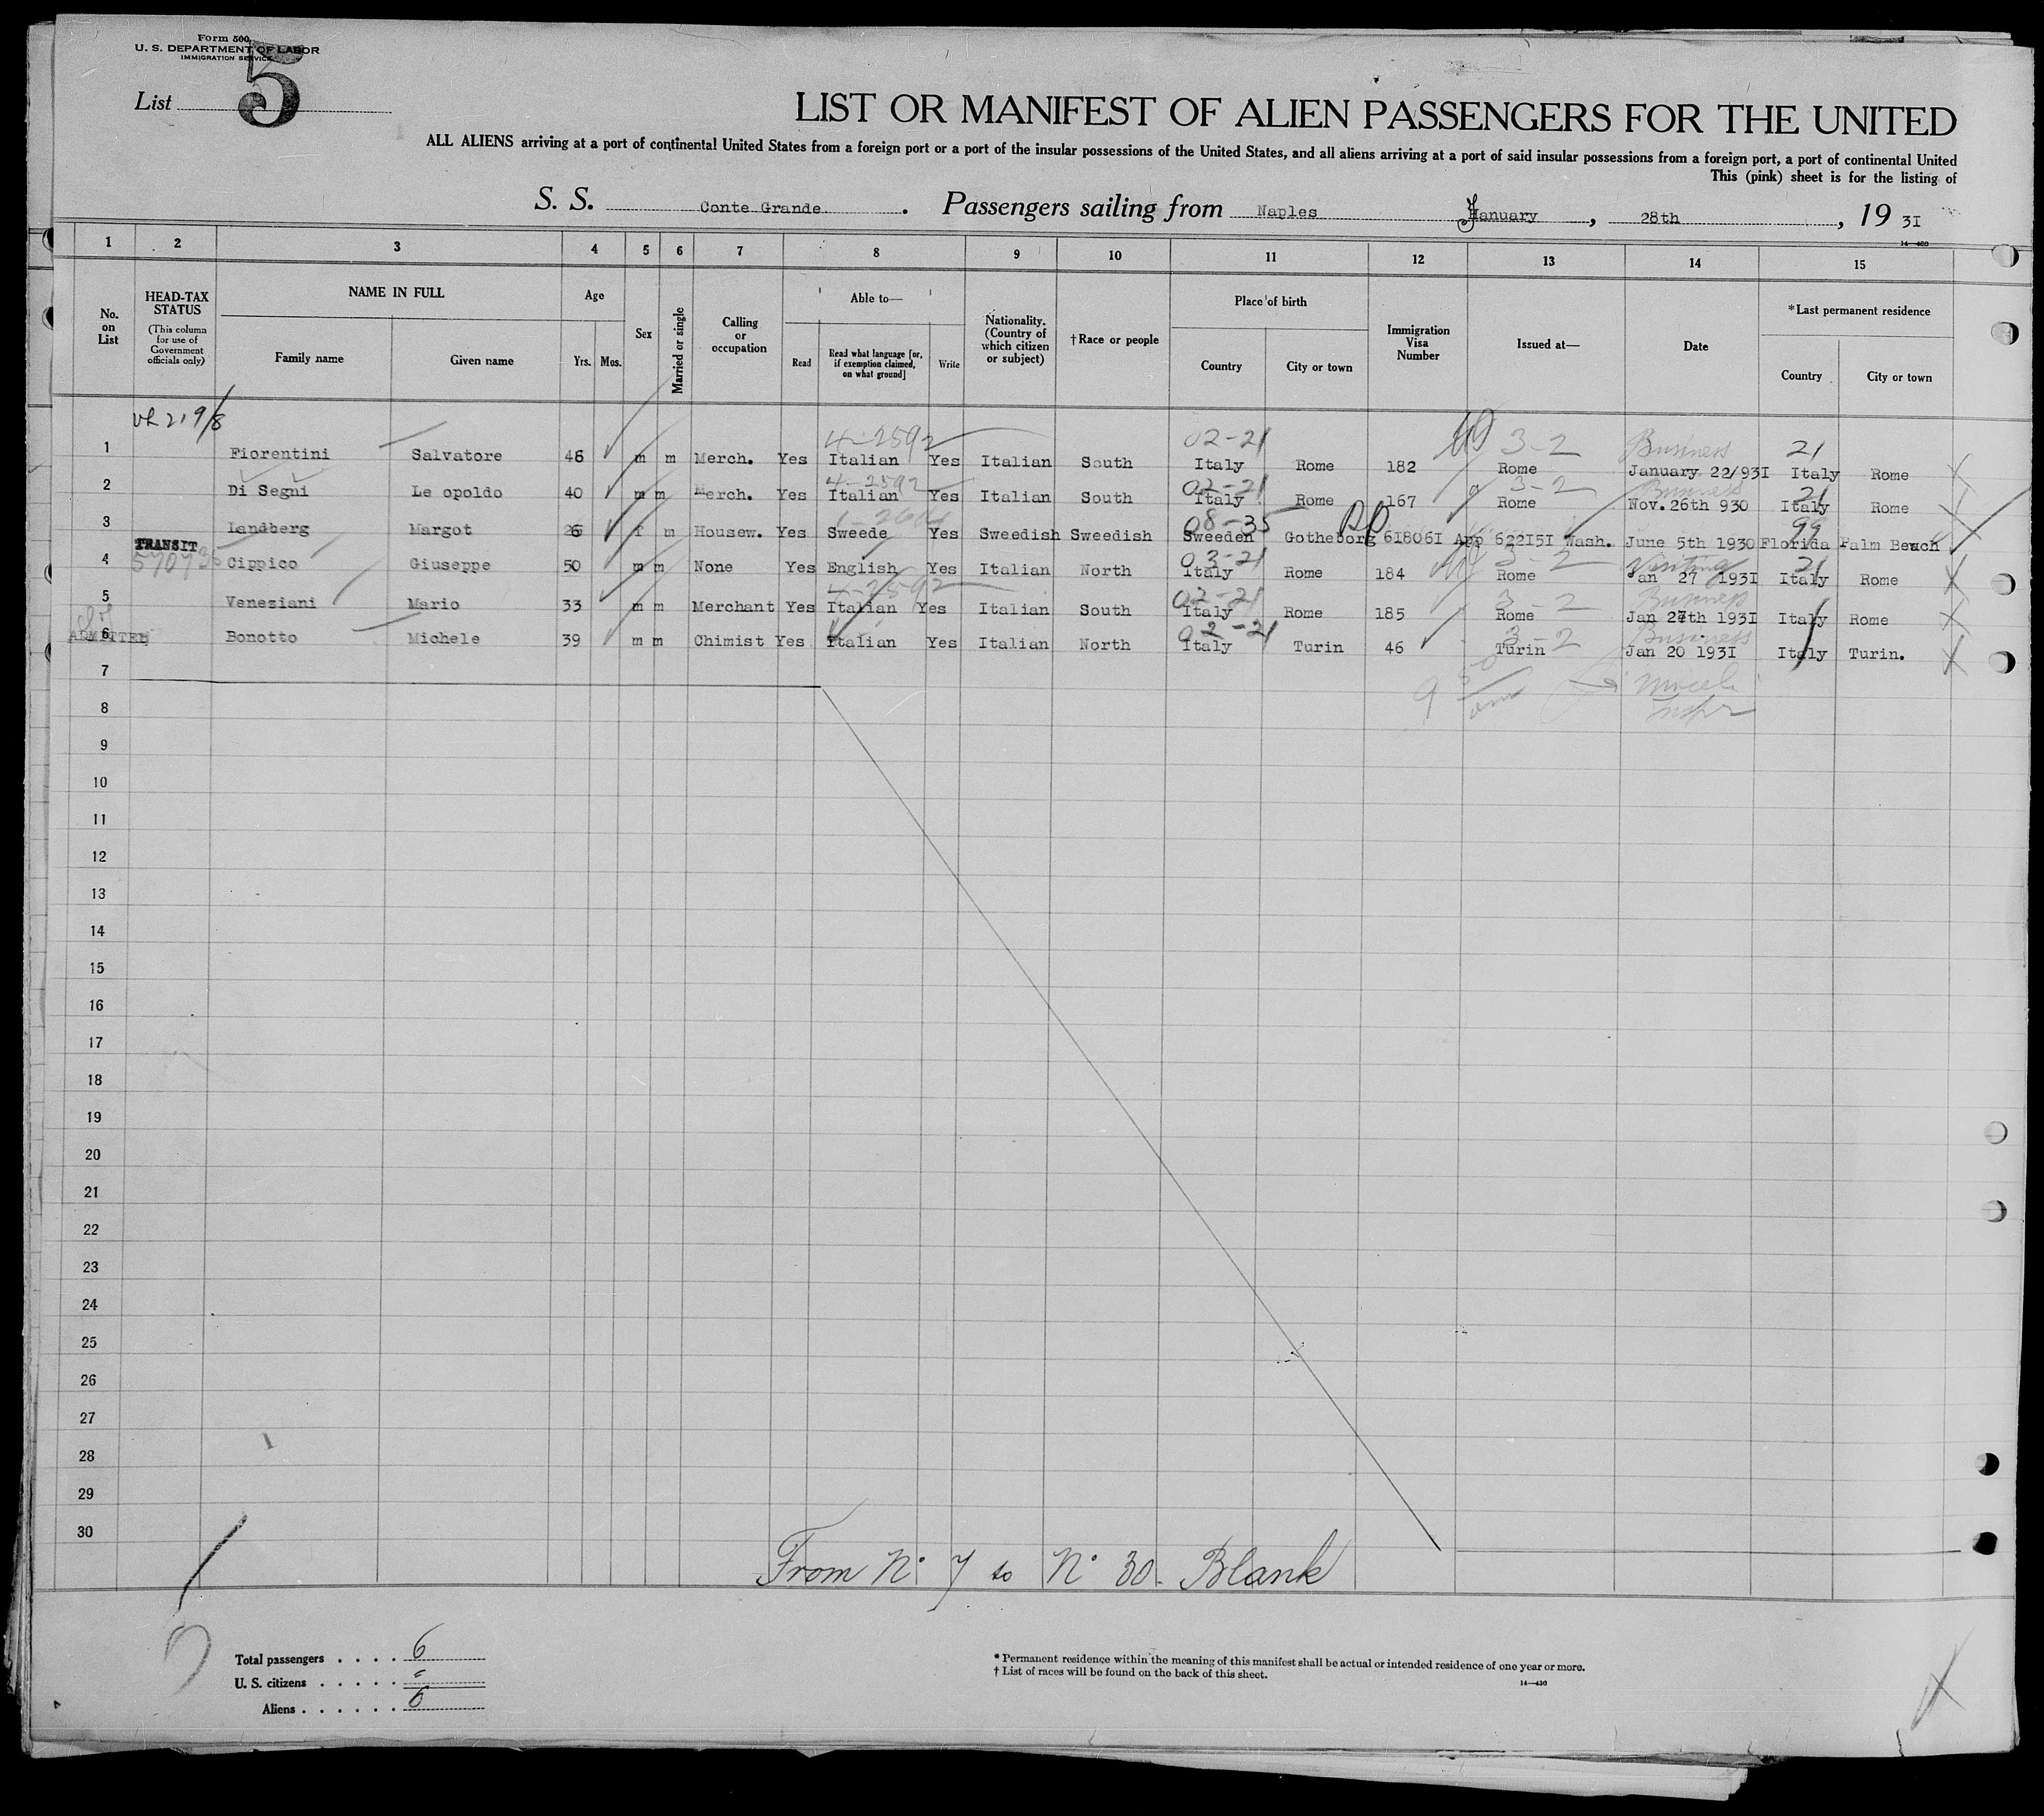 Form 500
U. S. DEPARTMENT OF LABOR
IMMIGRATION SERVICE
List 5
LIST OR MANIFEST OF ALIEN PASSENGERS FOR THE UNITED
ALL ALIENS arriving at a port of continental United States from a foreign port or a port of the insular possessions of the United States, and all aliens arriving at a port of said insular possessions from a foreign port, a port of continental United
This (pink) sheet is for the listing of
S. S. Conte Grande. Passengers sailing from Naples January, 28th, 19 3I
14—430
1 2 3 4 5 6 7 8 9 10 11 12 13 14 15
No. on List
HEAD-TAX STATUS
(This column for use of Government officials only)
NAME IN FULL
Family name Given name
Age
Yrs. Mos.
Sex
Married or single
Calling or occupation
Able to—
Read
Read what language [or, if exemption claimed, on what ground]
Write
Nationality. (Country of which citizen or subject)
†Race or people
Place of birth
Country City or town
Immigration Visa Number
Issued at—
Date
*Last permanent residence
Country City or town
4-2592 02-21 3-2 Business 21
1 Fiorentini Salvatore 46 m m Merch. Yes Italian Yes Italian South Italy Rome 182 Rome January 22/93I Italy Rome
4-2592 02-21 3-2 Business 21
2 Di Segni Le opoldo 40 m m Merch. Yes Italian Yes Italian South Italy Rome 167 Rome Nov.26th 930 Italy Rome
08-35 99
3 Landberg Margot 26 f m Housew. Yes Sweede Yes Swedish Swedish Sweeden Gotheborg 6I806I App 622I5I Wash. June 5th 1930 Florida Palm Beach
TRANSIT 03-21 3-2 Visiting 21
4 Cippico Giuseppe 50 m m None Yes English Yes Italian North Italy Rome 184 Rome Jan 27 1931 Italy Rome
4-2592 02-21 3-2 Business
5 Veneziani Mario 33 m m Merchant Yes Italian Yes Italian South Italy Rome 185 Rome Jan 27th 193I Italy Rome
ADMITTED 02-21 3-2 Business
6 Bonotto Michele 39 m m Chimist Yes Italian Yes Italian North Italy Turin 46 Turin Jan 20 193I Italy Turin.
7
8
9
10
11
12
13
14
15
16
17
18
19
20
21
22
23
24
25
26
27
28
29
30
From No 7 to No 30. Blank
Total passengers . . . . 6
U. S. citizens . . . . . "
Aliens . . . . . . 6
* Permanent residence within the meaning of this manifest shall be actual or intended residence of one year or more.
† List of races will be found on the back of this sheet.
14—430